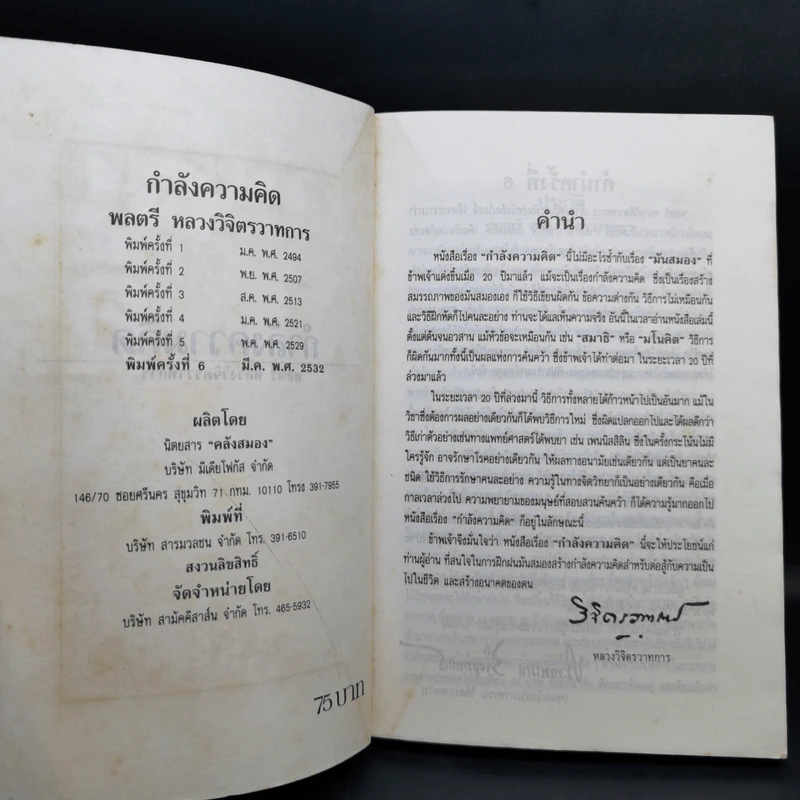 กำลังความคิด
พลตรี หลวงวิจิตรวาทการ
พิมพ์ครั้งที่ 1 ม.ค. พ.ศ. 2494
พิมพ์ครั้งที่ 2 พ.ย. พ.ศ. 2507
พิมพ์ครั้งที่ 3 ส.ค. พ.ศ. 2513
พิมพ์ครั้งที่ 4 ม.ค. พ.ศ. 2521
พิมพ์ครั้งที่ 5 พ.ค. พ.ศ. 2529
พิมพ์ครั้งที่ 6 มี.ค. พ.ศ. 2532
ผลิตโดย
นิตยสาร "คลังสมอง"
บริษัท มีเดียโฟกัส จำกัด
146/70 ซอยศรีนคร สุขุมวิท 71 กทม. 10110 โทร 391-7955
พิมพ์ที่
บริษัท สารมวลชน จำกัด โทร. 391-6510
สงวนลิขสิทธิ์
จัดจำหน่ายโดย
บริษัท สามัคคีสาส์น จำกัด โทร. 465-5932
75 บาท
คำนำ
หนังสือเรื่อง "กำลังความคิด" นี้ไม่มีอะไรซ้ำกับเรื่อง "มันสมอง" ที่
ข้าพเจ้าแต่งขึ้นเมื่อ 20 ปีมาแล้ว แม้จะเป็นเรื่องกำลังความคิด ซึ่งเป็นเรื่องสร้าง
สมรรถภาพของมันสมองเอง ก็ใช้วิธีเขียนผิดกัน ข้อความต่างกัน วิธีการไม่เหมือนกัน
และวิธีฝึกหัดก็ไปคนละอย่าง ท่านจะได้แลเห็นความจริง อันนี้ในเวลาอ่านหนังสือเล่มนี้
ตั้งแต่ต้นจนอวสาน แม้หัวข้อจะเหมือนกัน เช่น "สมาธิ" หรือ "มโนคติ" วิธีการ
ก็ผิดกันมากทั้งนี้เป็นผลแห่งการค้นคว้า ซึ่งข้าพเจ้าได้ทำต่อมา ในระยะเวลา 20 ปีที่
ล่วงมาแล้ว
ในระยะเวลา 20 ปีที่ล่วงมานี้ วิธีการทั้งหลายได้ก้าวหน้าไปเป็นอันมาก แม้ใน
วิชาซึ่งต้องการผลอย่างเดียวกันก็ได้พบวิธีการใหม่ ซึ่งผิดแปลกออกไปและได้ผลดีกว่า
วิธีเก่าตัวอย่างเช่นทางแพทย์ศาสตร์ได้พบยา เช่น เพนนิสสิลิน ซึ่งในครั้งกระโน้นไม่มี
ใครรู้จัก อาจรักษาโรคอย่างเดียวกัน ให้ผลทางอนามัยเช่นเดียวกัน แต่เป็นยาคนละ
ชนิด ใช้วิธีการรักษาคนละอย่าง ความรู้ในทางจิตวิทยาก็เป็นอย่างเดียวกัน คือเมื่อ
กาลเวลาล่วงไป ความพยายามของมนุษย์ที่สอบสวนค้นคว้า ก็ได้ความรู้มากออกไป
หนังสือเรื่อง "กำลังความคิด" ก็อยู่ในลักษณะนี้
ข้าพเจ้าจึงมั่นใจว่า หนังสือเรื่อง "กำลังความคิด" นี้จะให้ประโยชน์แก่
ท่านผู้อ่าน ที่สนใจในการฝึกฝนมันสมองสร้างกำลังความคิดสำหรับต่อสู้กับความเป็น
ไปในชีวิต และสร้างอนาคตของตน
หลวงวิจิตรวาทการ